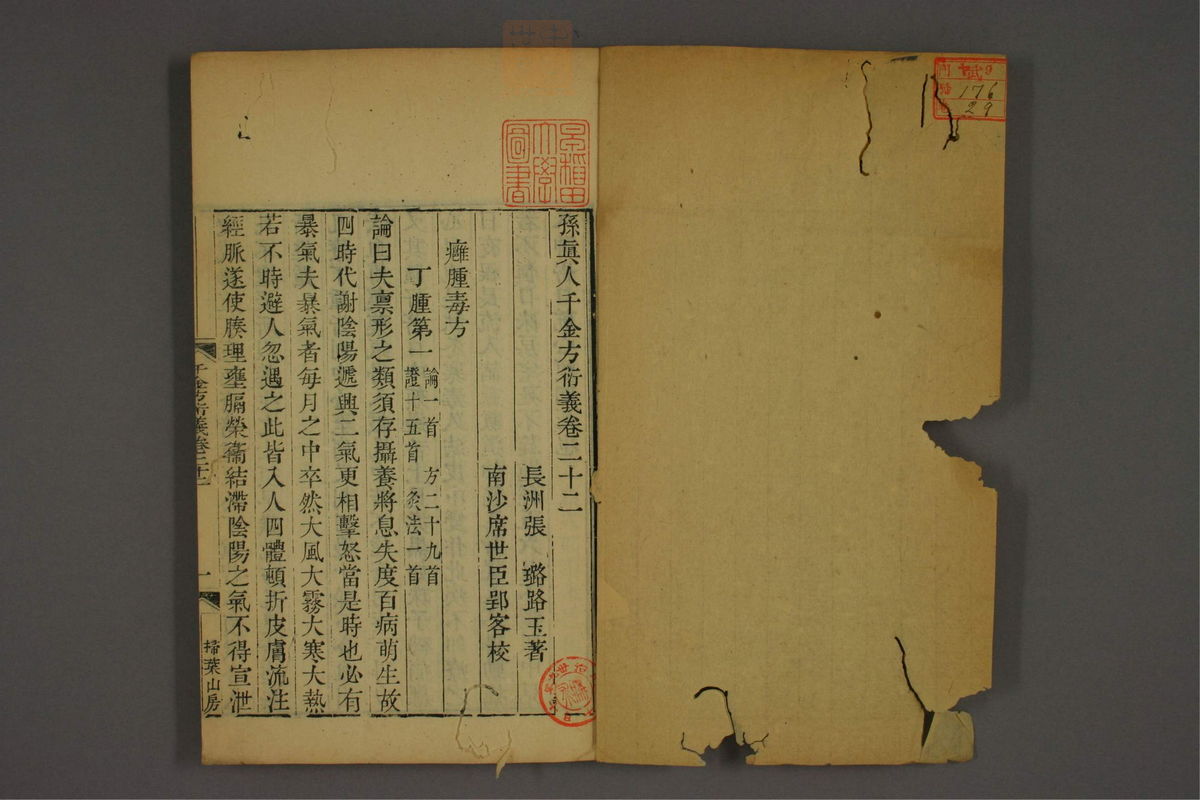 孫眞人千金方衍義卷二十二
長洲張　璐路玉著
南沙席世臣郢客校
癰腫毒方
丁腫第一 論一首 方二十九首 證十五首 灸法一首
論曰夫禀形之類須存攝養將息失度百病萌生故
四時代謝陰陽遞興二氣更相擊怒當是時也必有
暴氣夫暴氣者每月之中卒然大風大霧大寒大熱
若不時避人忽遇之此皆入人四體頓折皮膚流注
經脈遂使腠理壅膈榮衞結滯陰陽之氣不得宣泄
千金方衍義卷二十二
一
掃葉山房
早稻田大學圖書
176
29